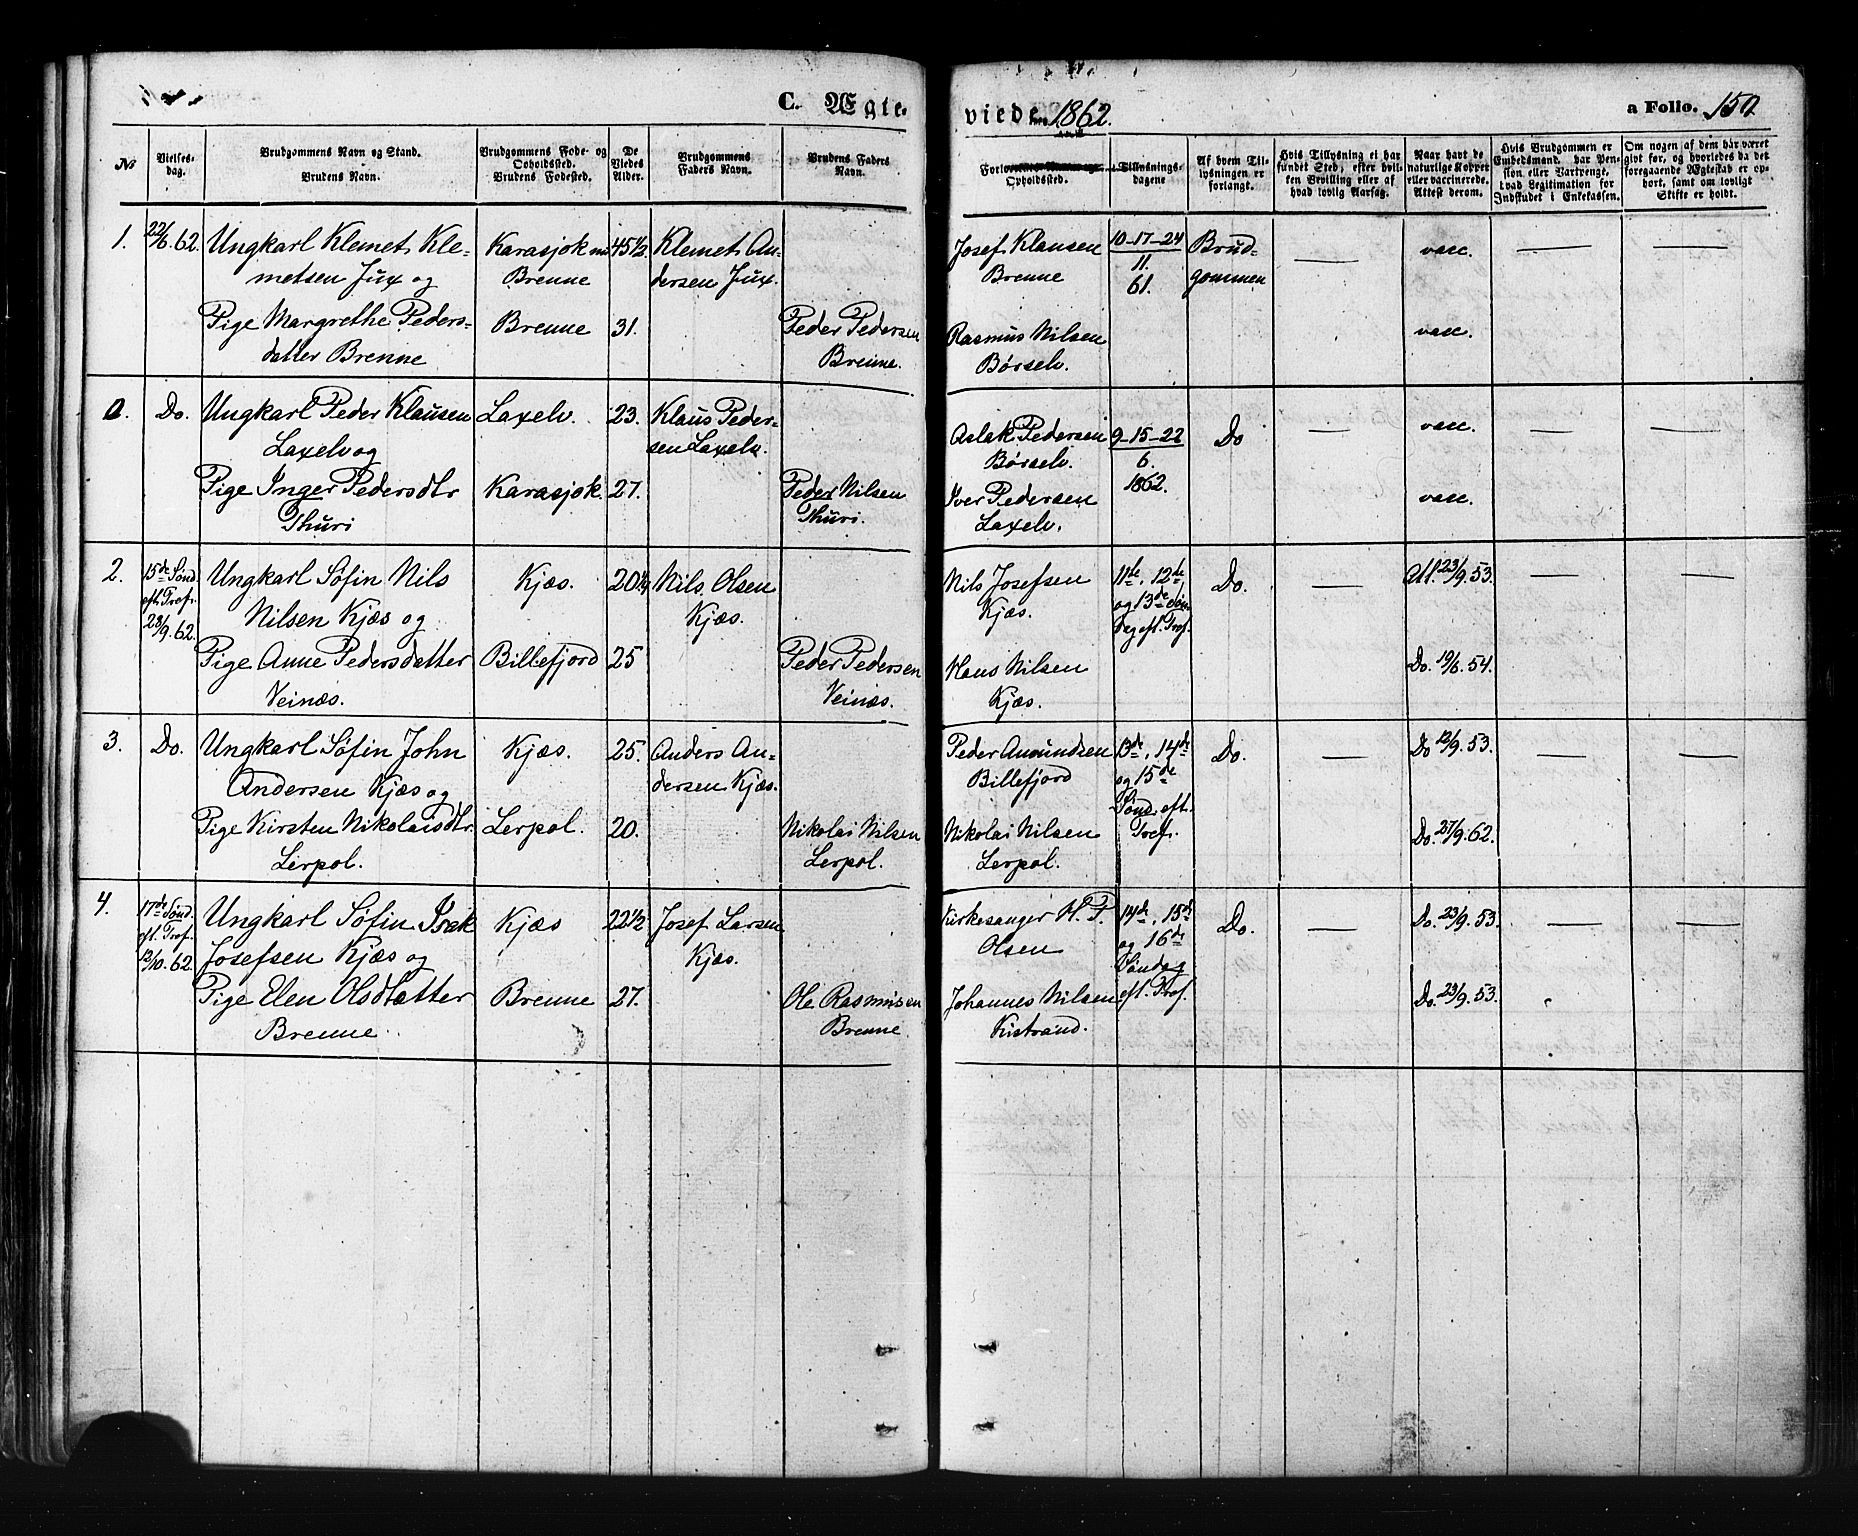 C. Ægte-
viede 1862.
a Folio. 150
No
Vielses-
dag.
Brudgommens Navn og Stand.
Brudens Navn.
Brudgommens Føde- og
Opholdssted.
Brudens Fødested.
De
Viedes
Alder.
Brudgommens
Faders Navn.
Brudens Faders
Navn.
Forlovernes
Opholdssted.
Tillysnings-
dagene
Af hvem Til-
lysningen er
forlangt.
Hvis Tillysning ei har
fundet Sted, efter hvil-
ken Bevilling eller af
hvad lovlig Aarsag.
Naar havt de
naturlige Kopper
eller vaccinerede.
Attest derom.
Hvis Brudgommen er
Embedsmand, har Pen-
sion eller Vartpenge,
hvad Legitimation for
Indskudet i Enkekassen.
Om nogen af dem har været
givt før, og hvorledes da det
foregaaende Ægteskab er op-
hørt, samt om lovligt
Skifte er holdt.
1.
22/6. 62.
Ungkarl Klemet Kle-
metsen Jux og
Karasjok
Brenne
45 1/2
Klemet An-
dersen Jux.
Josef Klausen
Brenne
10-17-24
11.
61.
Brud-
gommen
vacc.
Pige Margrethe Peders-
datter Brenne
Brenne
31.
Peder Pedersen
Brenne.
Rasmus Nilsen
Børselv.
vacc.
Do.
Ungkarl Peder Klausen
Laxelv og
Laxelv.
23.
Klaus Peder-
sen Laxelv.
Aslak Pedersen
Børselv.
9-15-22
6.
1862.
Do
vacc.
Pige Inger Pedersdtr
Thuri
Karasjok.
27.
Peder Nilsen
Thuri.
Iver Pedersen
Laxelv.
vacc.
2.
15de Sønd.
eft. Tref.
28/9. 62.
Ungkarl Søfin Nils
Nilsen Kjæs og
Kjæs.
20 1/2
Nils Olsen
Kjæs.
Nils Josefsen
Kjæs.
11de, 12de,
og 13de Søn-
dag eft. Tref.
Do.
Att. 23/9. 53.
Pige Anne Pedersdatter
Veinæs.
Billefjord
25
Peder Pedersen
Veinæs.
Hans Nilsen
Kjæs.
Do. 19/6. 54.
3.
Do.
Ungkarl Søfin John
Andersen Kjæs og
Kjæs.
25.
Anders An-
dersen Kjæs.
Peder Amundsen
Billefjord
13de, 14de
og 15de
Sønd. eft.
Tref.
Do.
Do 12/9. 53.
Pige Kirsten Nikolaisdtr.
Lerpol.
Lerpol.
20.
Nikolai Nilsen
Lerpol.
Nikolai Nilsen
Lerpol.
Do. 27/9. 62.
4.
17de Sønd.
eft. Tref.
12/10. 62
Ungkarl Søfin Isak
Josefsen Kjæs og
Kjæs
22 1/2
Josef Larsen
Kjæs.
Kirkesanger H. P.
Olsen
14de, 15de
og 16de
Søndag
eft. Tref.
Do.
Do. 23/9. 53.
Pige Elen Olsdatter
Brenne
Brenne
27.
Ole Rasmusen
Brenne
Johannes Nilsen
Kistrand.
Do. 23/9. 53.